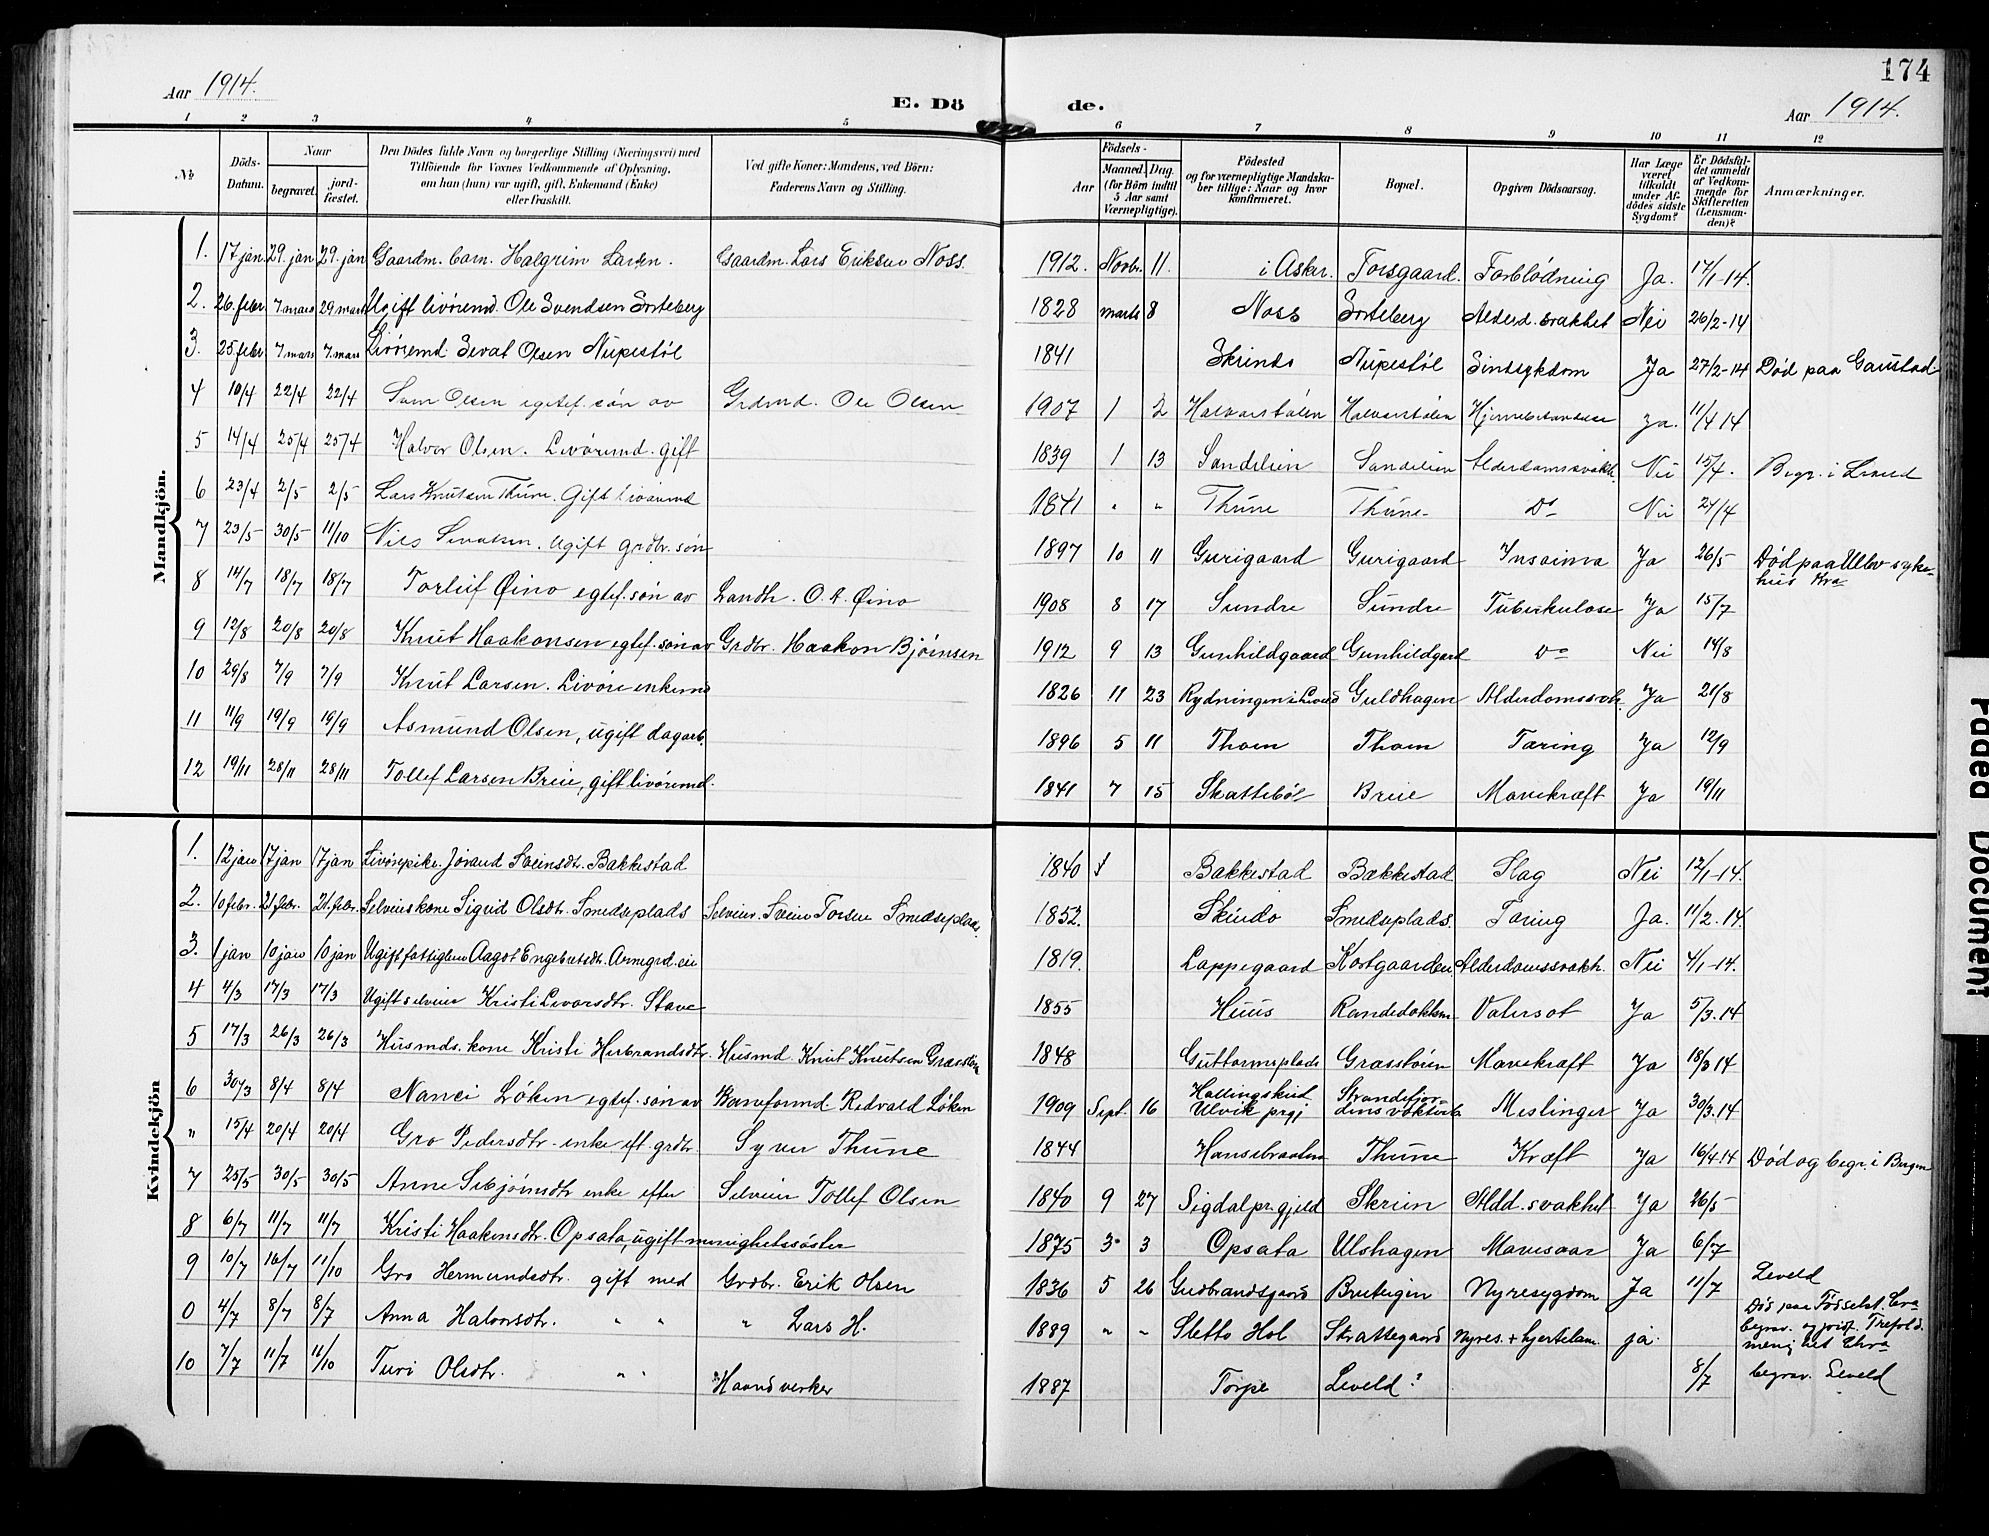 174
Aar 1914.
E. Dö de.
Aar 1914.
1 2 3 4 5 6 7 8 9 10 11 12
No
Döds-Datum.
Naar
begravet.
jord-fæstet.
Den Dödes fulde Navn og borgerlige Stilling (Næringsvei) med
Tilföiende för Voxnes Vedkommende af Oplysning,
om han (hun) var ugift, gift, Enkemand (Enke)
eller fraskilt.
Ved gifte Koner: Mandens, ved Börn:
Faderens Navn og Stilling.
Födsels-
Aar
Maaned. Dag.
(for Börn indtil
5 Aar samt
Værnepligtige).
Födested
og for værnepligtige Mandska-
ber tillige: Naar og hvor
konfirmeret.
Bopæl.
Opgiven Dödsaarsag.
Har Læge
været
tilkaldt
under Af-
dödes sidste
Sygdom?
Er Dödsfal-
det anmeldt
af Vedkom-
mende for
Skifteretten
(Lensman-
den)?
Anmærkninger.
Mandkjön.
1. 17 jan. 29. jan 29. jan Gaardm. barn. Halgrim Larsen. Gaardm. Lars Eriksen Noss. 1912. Novbr. 11. i Asker. Torsgaard. Forblödning Ja. 17/1-14.
2. 26. febr 7. mars 29 mars Ugift livöremd. Ole Svendsen Sorteberg 1828 marts 8 Noss Sorteberg Alderd. svakhet Nei 26/2-14
3. 25 febr 7. mars 7. mars Livöremd. Sevat Olsen Nupestöl 1841 Skrindo Nupestöl Sindsykdom Ja 27/2-14 Död paa Gaustad
4 10/4 22/4 22/4 Olsen egtef. sön av Grdmd. Ole Olsen 1907 1 2 Halvorstölen Halvorstölen Ja. 11/4 14
5 14/4 25/4 25/4 Halvor Olsen. Livöremd. gift 1839 1 13 Sandelien Sandelien Alderdomssvakh. Nei 15/4. Begr. i
6 23/4 2/5 2/5 Lars Knutsen Thune. Gift livöremd 1841 " " Thune Thune Do Nei 24/4
7 23/5 30/5 11/10 Nils Sevatsen. Ugift grdbr. sön 1897 10 11 Gurigaard Gurigaard Ja 26/5 Död paa Ullev syke-
hus Kra
8 14/7 18/7 18/7 Torleif Øino egtef. sön av Landh. O. A. Øino 1908 8 17 Sundre Sundre Tuberkulose Ja 15/7
9 12/8 20/8 20/8 Knut Haakonsen egtef. sön av Grdbr. Haakon Bjørnsen 1912 9 13 Gunhildgaard Gunhildgard Do Nei 14/8
10 29/8 7/9 7/9 Knut Larsen. Livöreenkemd 1826 11 23 Rydningen i Guldhagen Alderdomssvak. Ja 21/8
11 11/9 19/9 19/9 Asmund Olsen, ugift dagarb. 1896 5 11 Thoen Thoen Tæring Ja 12/9
12 19/11 28/11 28/11 Tollef Larsen Breie, gift livöremd. 1841 7 15 Skattebøl Breie Mavekræft Ja 19/11
Kvindekjön
1. 12 jan 17 jan 17 jan Livörepike. Jörand Sveinsdtr. Bakkestad 1840 Bakkestad Bakkestad Slag Nei 12/1-14.
2. 10 febr. 21. febr. 21. febr. Selveierskone Sigrid Olsdtr. Smedseplads Selveier. Svein Torsen Smedseplads. 1852. Skindo Smedseplads. Tæring Ja. 11/2. 14.
3. 1 jan 10 jan 10 jan Ugift fattiglem Aagot Engebretsdtr. Annegrd. eie 1819. Lappegaard Kostgaarden Alderdomssvakh. Nei 4/1-14.
4 4/3 17/3 17/3 Ugift selveier Kristi Levorsdtr. Stave 1855 Huus Vatersot Ja 5/3. 14
5 17/3 26/3 26/3 Husmds. kone Kristi Herbrandsdtr. Husmd. Knut Knutsen 1848 Guttormsplads Mavekræft Ja 18/3 14
6 30/3 8/4 8/4 Nanci Löken egtef. sön av Baneformd. Redvald Löken 1909 Sept. 16 Hallingskeid
Ulvik prgj Strandefjor- Meslinger Ja 30/3. 14
" 15/4 20/4 20/4 Gro Pedersdtr. enke eft. grdbr. Syver Thune 1844 Thune Kræft Ja 16/4. 14 Död og begr. i Bergen
7 25/5 30/5 30/5 Anne Sebjörnsdtr enke efter Selveier Tollef Olsen 1840 9 27 Sigdal pr. gjeld Skrim Aldd. svakhet Ja 26/5
8 6/7 11/7 11/7 Kristi Haakensdtr. Opsata, ugift menighetssöster 1875 3 3 Opsata Ulshagen Mavesaar Ja 6/7
9 10/7 16/7 11/10 Gro Hermundsdtr. gift med Grdbr. Erik Olsen 1836 5 26 Gudbrandsgaard Bruteigen Nyresygdom Ja 11/7 Leveld
0 4/7 8/7 8/7 Anna Halvorsdtr. " " " Lars H. 1889 " " Sletto Hol Strattegaard Nyres. + hjertelam. ja. Död paa Födselst. Chra
begrav. og jordf. Trefold.
menighet Chra
10 7/7 11/7 11/10 Turi Olsdtr. " " Haandverker 1887 Torpe Leveld? 8/7 begrav. Leveld
Paged Document